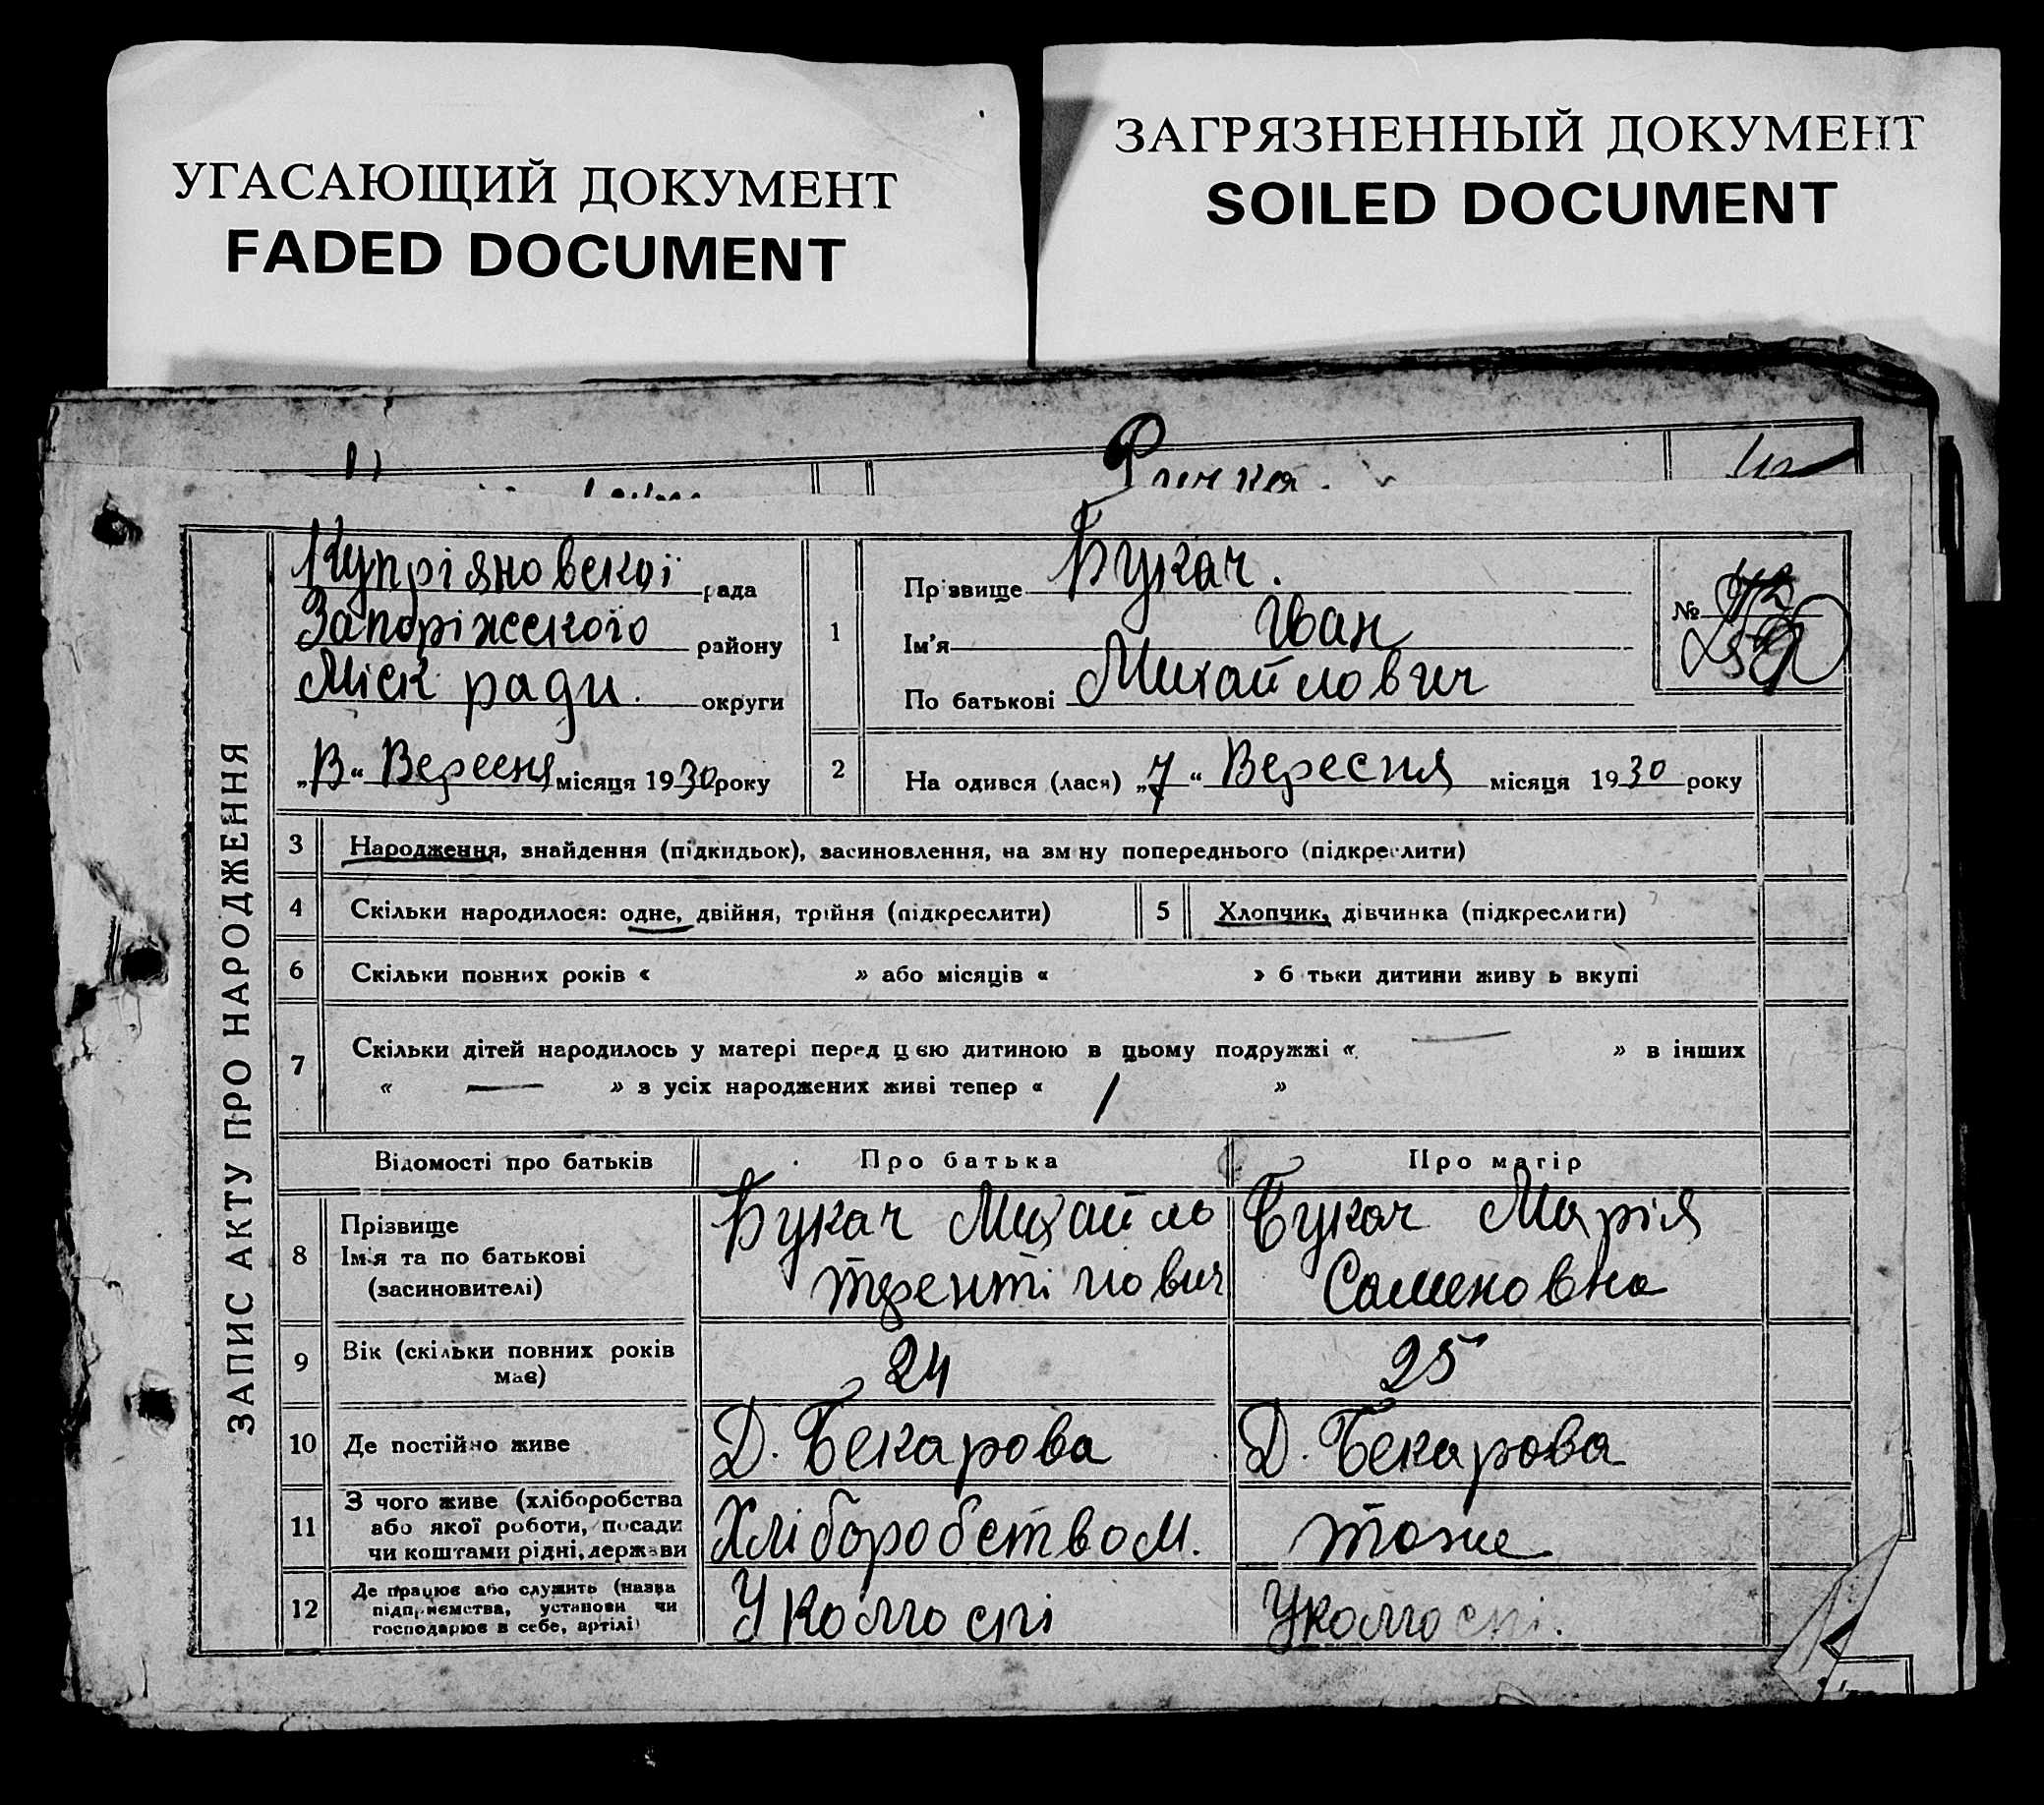 УГАСАЮЩИЙ ДОКУМЕНТ
FADED DOCUMENT
ЗАГРЯЗНЕННЫЙ ДОКУМЕНТ
SOILED DOCUMENT
ЗАПИС АКТУ ПРО НАРОДЖЕННЯ
Купріяновської рада
Запоріжського району
Міск ради. округи
„В“ Вересня місяця 1930 року
1
Прізвище Букач.
Ім'я Іван
По батькові Михайлович
№
2 На одився (лася) „7“ Вересня місяця 1930 року
3 Народження, знайдення (підкидьок), засиновлення, на зм ну попереднього (підкреслити)
4 Скільки народилося: одне, двійня, трійня (підкреслити) 5 Хлопчик, дівчинка (підкреслити)
6 Скільки повних років « » або місяців « » б тьки дитини живу ь вкупі
7 Скільки дітей народилось у матері перед цєю дитиною в цьому подружжі « — » в інших
« — » з усіх народжених живі тепер « 1 »
Відомості про батьків Про батька Про матір
8 Прізвище
Ім'я та по батькові
(засиновителі)
Букач Михайло
Терентійович
Букач Марія
Саменовна
9 Вік (скільки повних років
має)
24 25
10 Де постійно живе Д. Бекарова Д. Бекарова
11 З чого живе (хліборобства
або якої роботи, посади
чи коштами рідні, держави
Хліборобством. тоже
12 Де працює або служить (назва
підприємства, установи чи
господарює в себе, артілі)
У колгоспі У колгоспі.